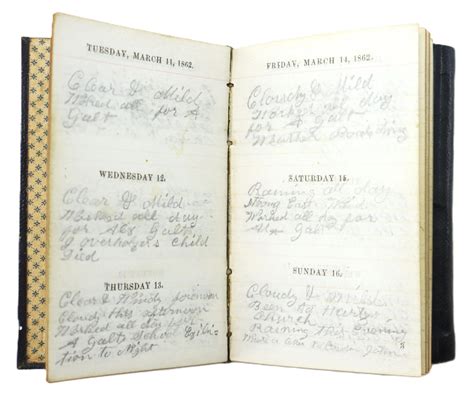 TUESDAY, MARCH 11, 1862.
Clear & Mild
Worked all for A
Galt
WEDNESDAY 12.
Clear & Mild
Worked all day
for Alx Galt
child
Died
THURSDAY 13.
Clear & Windy forenoon
Cloudy this afternoon
Worked all day for
A Galt School Exibi-
tion to Night
FRIDAY, MARCH 14, 1862.
Cloudy & Mild
Worked all day
for A Galt
Weather
SATURDAY 15.
Raining all day
Strong East Wind
Worked all day for
Alx Galt
SUNDAY 16.
Cloudy &
Been to
Church
Raining this Evening
John